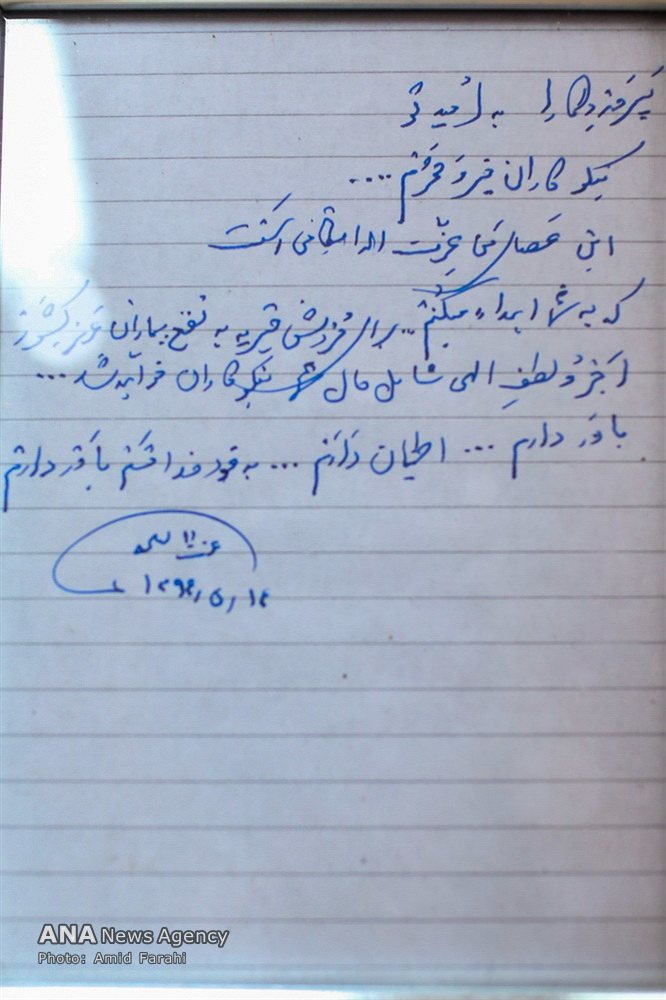 به امید تو
نیکوکاران خیر و محترم ....
این عصای من عزت الله انتظامی است
که به شما اهداء میکنم .. برای فروش خیریه به نفع بیماران عزیز کشور
اَجر و لطفِ الهی شامل حال شما نیکوکاران خواهد شد ...
باور دارم ... اطمینان دارم ... به خود خدا قسم باور دارم
۱۳۹۴٫۵٫۱۴
ANA News Agency
Photo: Amid Farahi